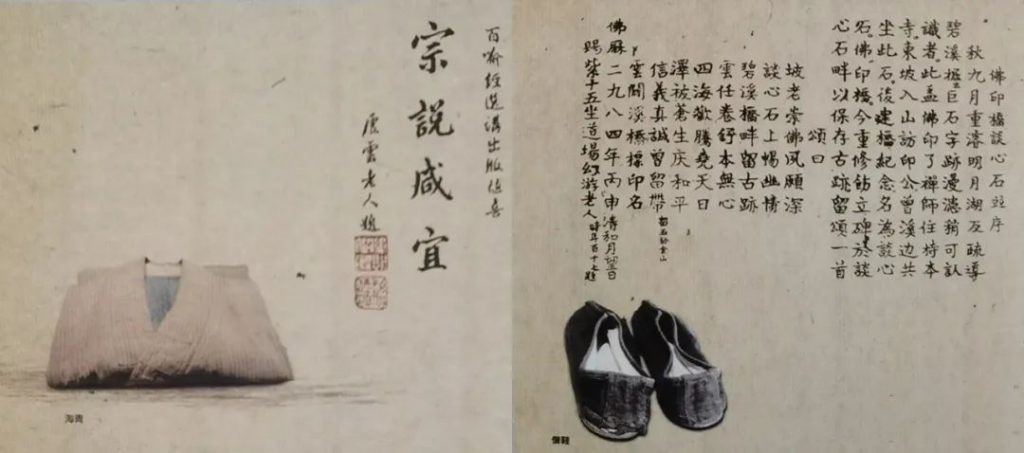 百喻經選講出版誌喜
宗說咸宜
虛雲老人題
海青
佛印橋談心石並序
秋九月重濬明月湖及疏導
碧溪橋巨石字跡漫漶稍可認
識者此蓋佛印了禪師住持本
寺東坡入山訪印公曾溪边共
坐此石後建橋紀念名為談心
石佛印橋今重修飭立碑於談
心石畔以保存古跡留頌一首
頌曰
坡老崇佛夙願深
談心石上暢幽情
碧溪橋畔留古跡
雲任卷舒本無心
四海歡騰堯天日
澤被蒼生庆和平
信義真誠曾留帶 留玉於金山
雲閒溪橋標印名
佛曆二九八四年丙申清和月望日
賜紫十五坐道場幻游老人時年百十七題
僧鞋